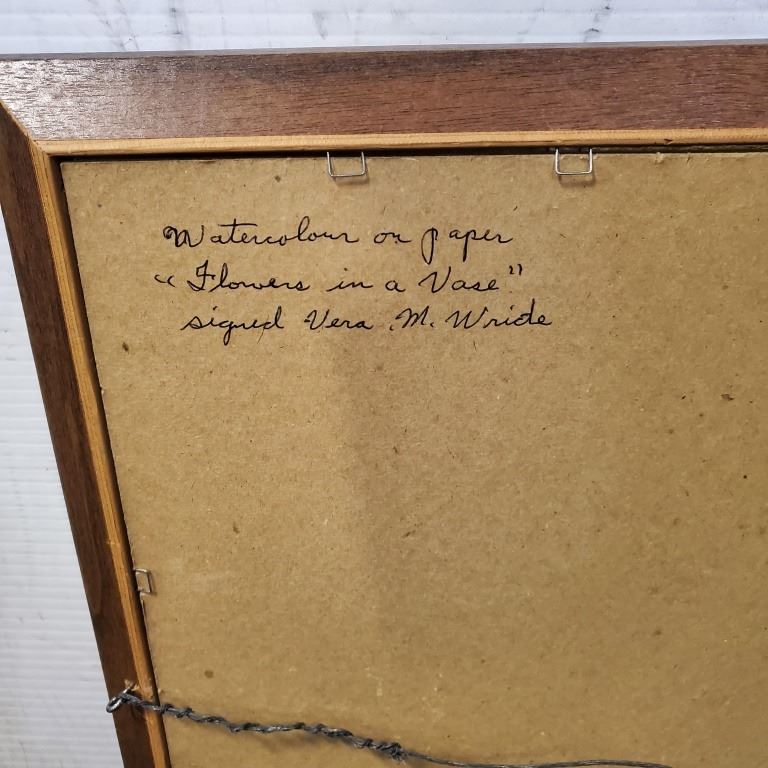 Watercolour on paper
“Flowers in a Vase”
signed Vera M. Wride